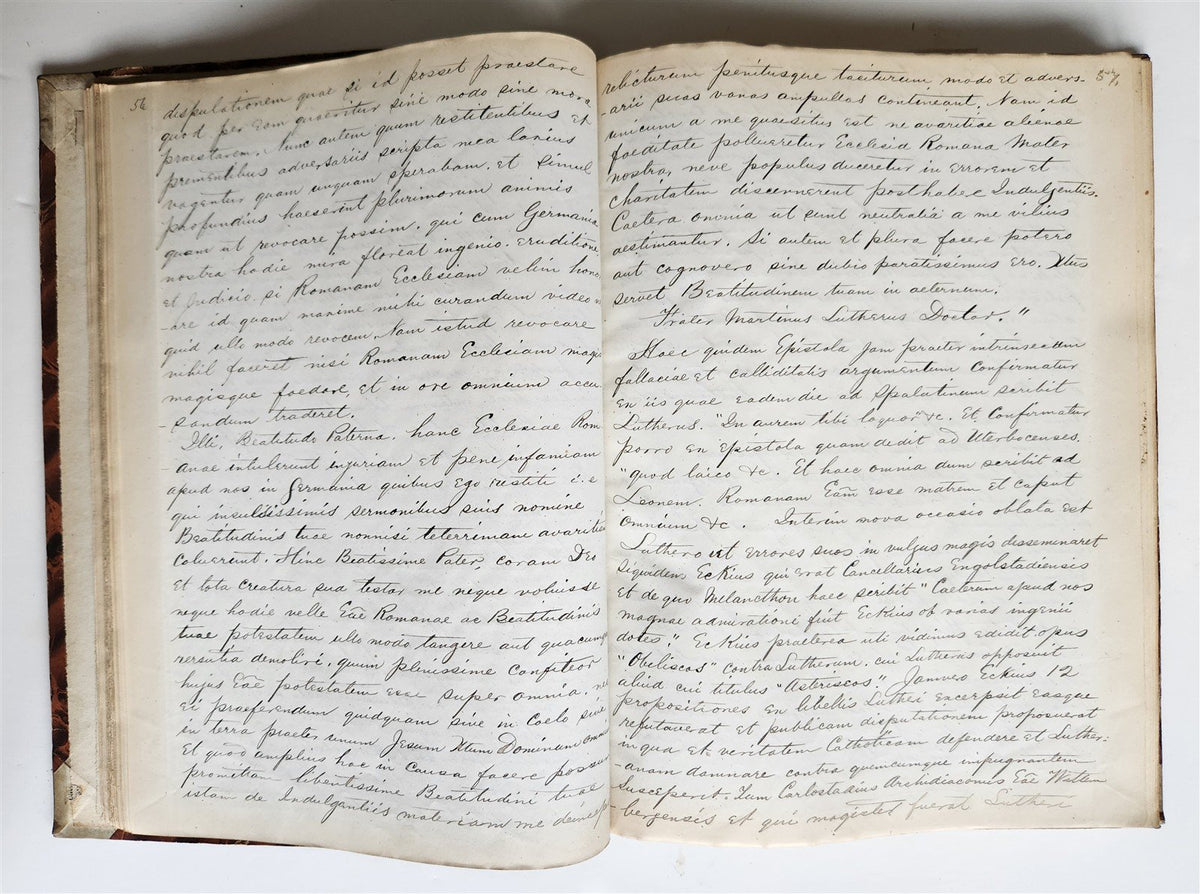 56
disputationem quae si id posset praestare
quod per eam quaeritur sine modo sine mora
praestarem. Nunc autem quum restitentibus et
prementibus adversariis scripta mea latius
vagentur quam unquam sperabam. et simul
profundius haeserint plurimorum animis
quam ut revocare possim. qui cum Germania
nostra hodie mira floreat ingenio. Eruditione
et Judicio. si Romanam Ecclesiam velim hono
-are id quam maxime mihi curandum video n
quid ullo modo revocem. Nam istud revocare
nihil faceret nisi Romanam Ecclesiam magis
magisque foedare, et in ore omnium accu
-sandum traderet.
Illi, Beatitudo Paterna. hanc Ecclesiae Rom
-anae intulerunt injuriam et pene infamiam
apud nos in Germania quibus Ego restiti i.e
qui insulsissimis sermonibus suis nomine
Beatitudinis tuae nonnisi teterrimam avaritiam
coluerunt. Hinc Beatissime Pater, coram Deo
et tota creatura sua testor me neque voluisse
neque hodie velle Eae Romanae ac Beatitudinis
tuae potestatem ullo modo tangere aut quacumq
versutia demoliri. quin plenissime confiteor
hujus Eae potestatem esse super omnia. nec
Ei praeferendum quidquam sive in Coelo sive
in terra praeter unum Jesum Xtum Dominum omni
Et quod amplius hac in Causa facere possum
promittam libentissime Beatitudini tuae
istam de Indulgentiis materiam me deinceps
57
relicturum penitusque taciturum modo et advers-
-arii suas vanas ampullas contineant. Nam id
unicum a me quaesitus est ne avaritiae alienae
foeditate pollueretur Ecclesia Romana Mater
nostra, neve populus duceretur in Errorem et
charitatem discernerent posthabec Indulgentiis.
Caetera omnia ut sunt neutralia a me vilius
aestimantur. Si autem et plura facere potero
aut cognovero sine dubio paratissimus ero. Xtus
servet Beatitudinem tuam in aeternum.
Frater Martinus Lutherus Doctor."
Haec quidem Epistola jam praeter intrinsecum
fallaciae et calliditatis argumentum confirmatur
En iis quae eadem die ad Spalatinum scribit
Lutherus. "In aurem tibi loquor" &c. Et Confirmatur
porro en Epistola quam dedit ad Uterbocenses.
"quod laico &c. Et haec omnia dum scribit ad
Leonem. Romanam Eam esse matrem et caput
omnium &c. Interim nova occasio oblata est
Luthero ut Errores suos in vulgus magis disseminaret
siquidem Eckius qui erat Cancellarius Engolstadiensis
Et de quo Melancthon haec scribit "Caeterum apud nos
magnae admirationi fuit Eckius ob varias ingenii
dotes." Eckius praeterea uti vidimus edidit opus
"Obeliscos" contra Lutherum. cui Lutherus opposuit
aliud cui titulus "Asteriscos". Jam vero Eckius 12
propositiones en libellis Lutheri excerpsit easque
refutaverat et publicam disputationem proposuerat
in qua et veritatem Catholicam defendere et Luther:
-anam damnare contra quemcumque impugnantem
susceperit. Tum Carlostadius Archidiaconus Eae Witten
bergensis et qui magister fuerat Lutheri